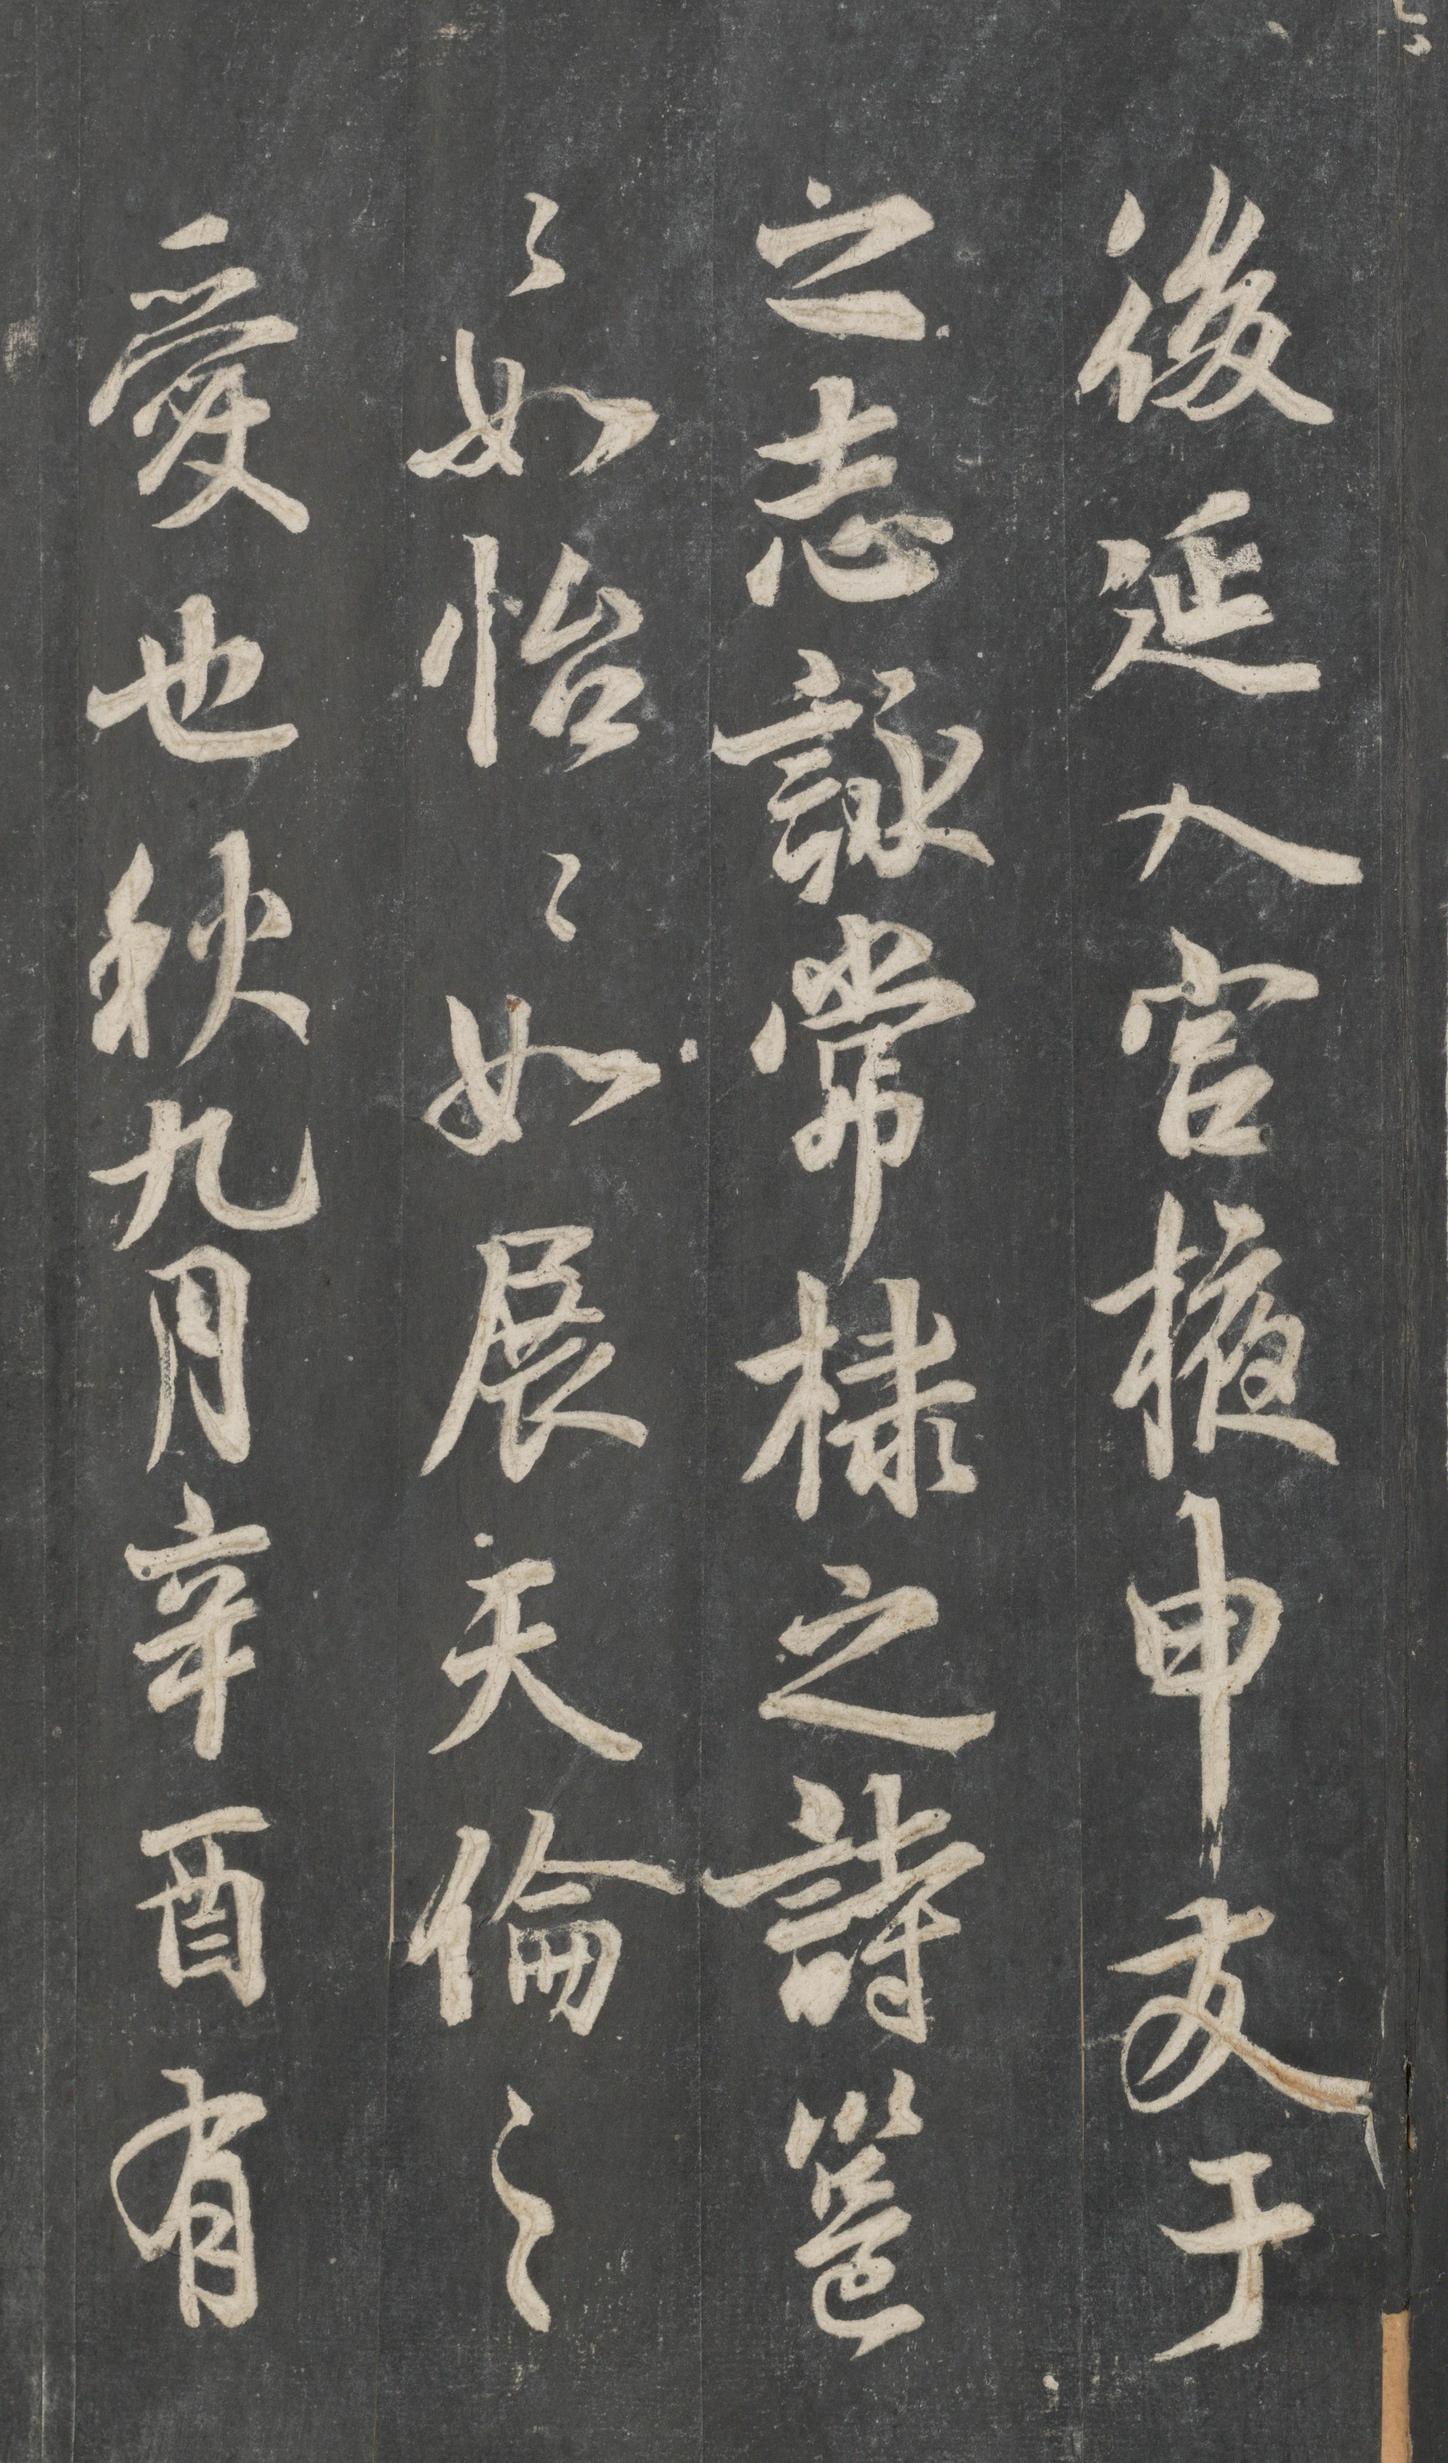 後延入宮掖申友于
之志詠常棣之詩邕
〻如怡〻如展天倫之
愛也秋九月辛酉有